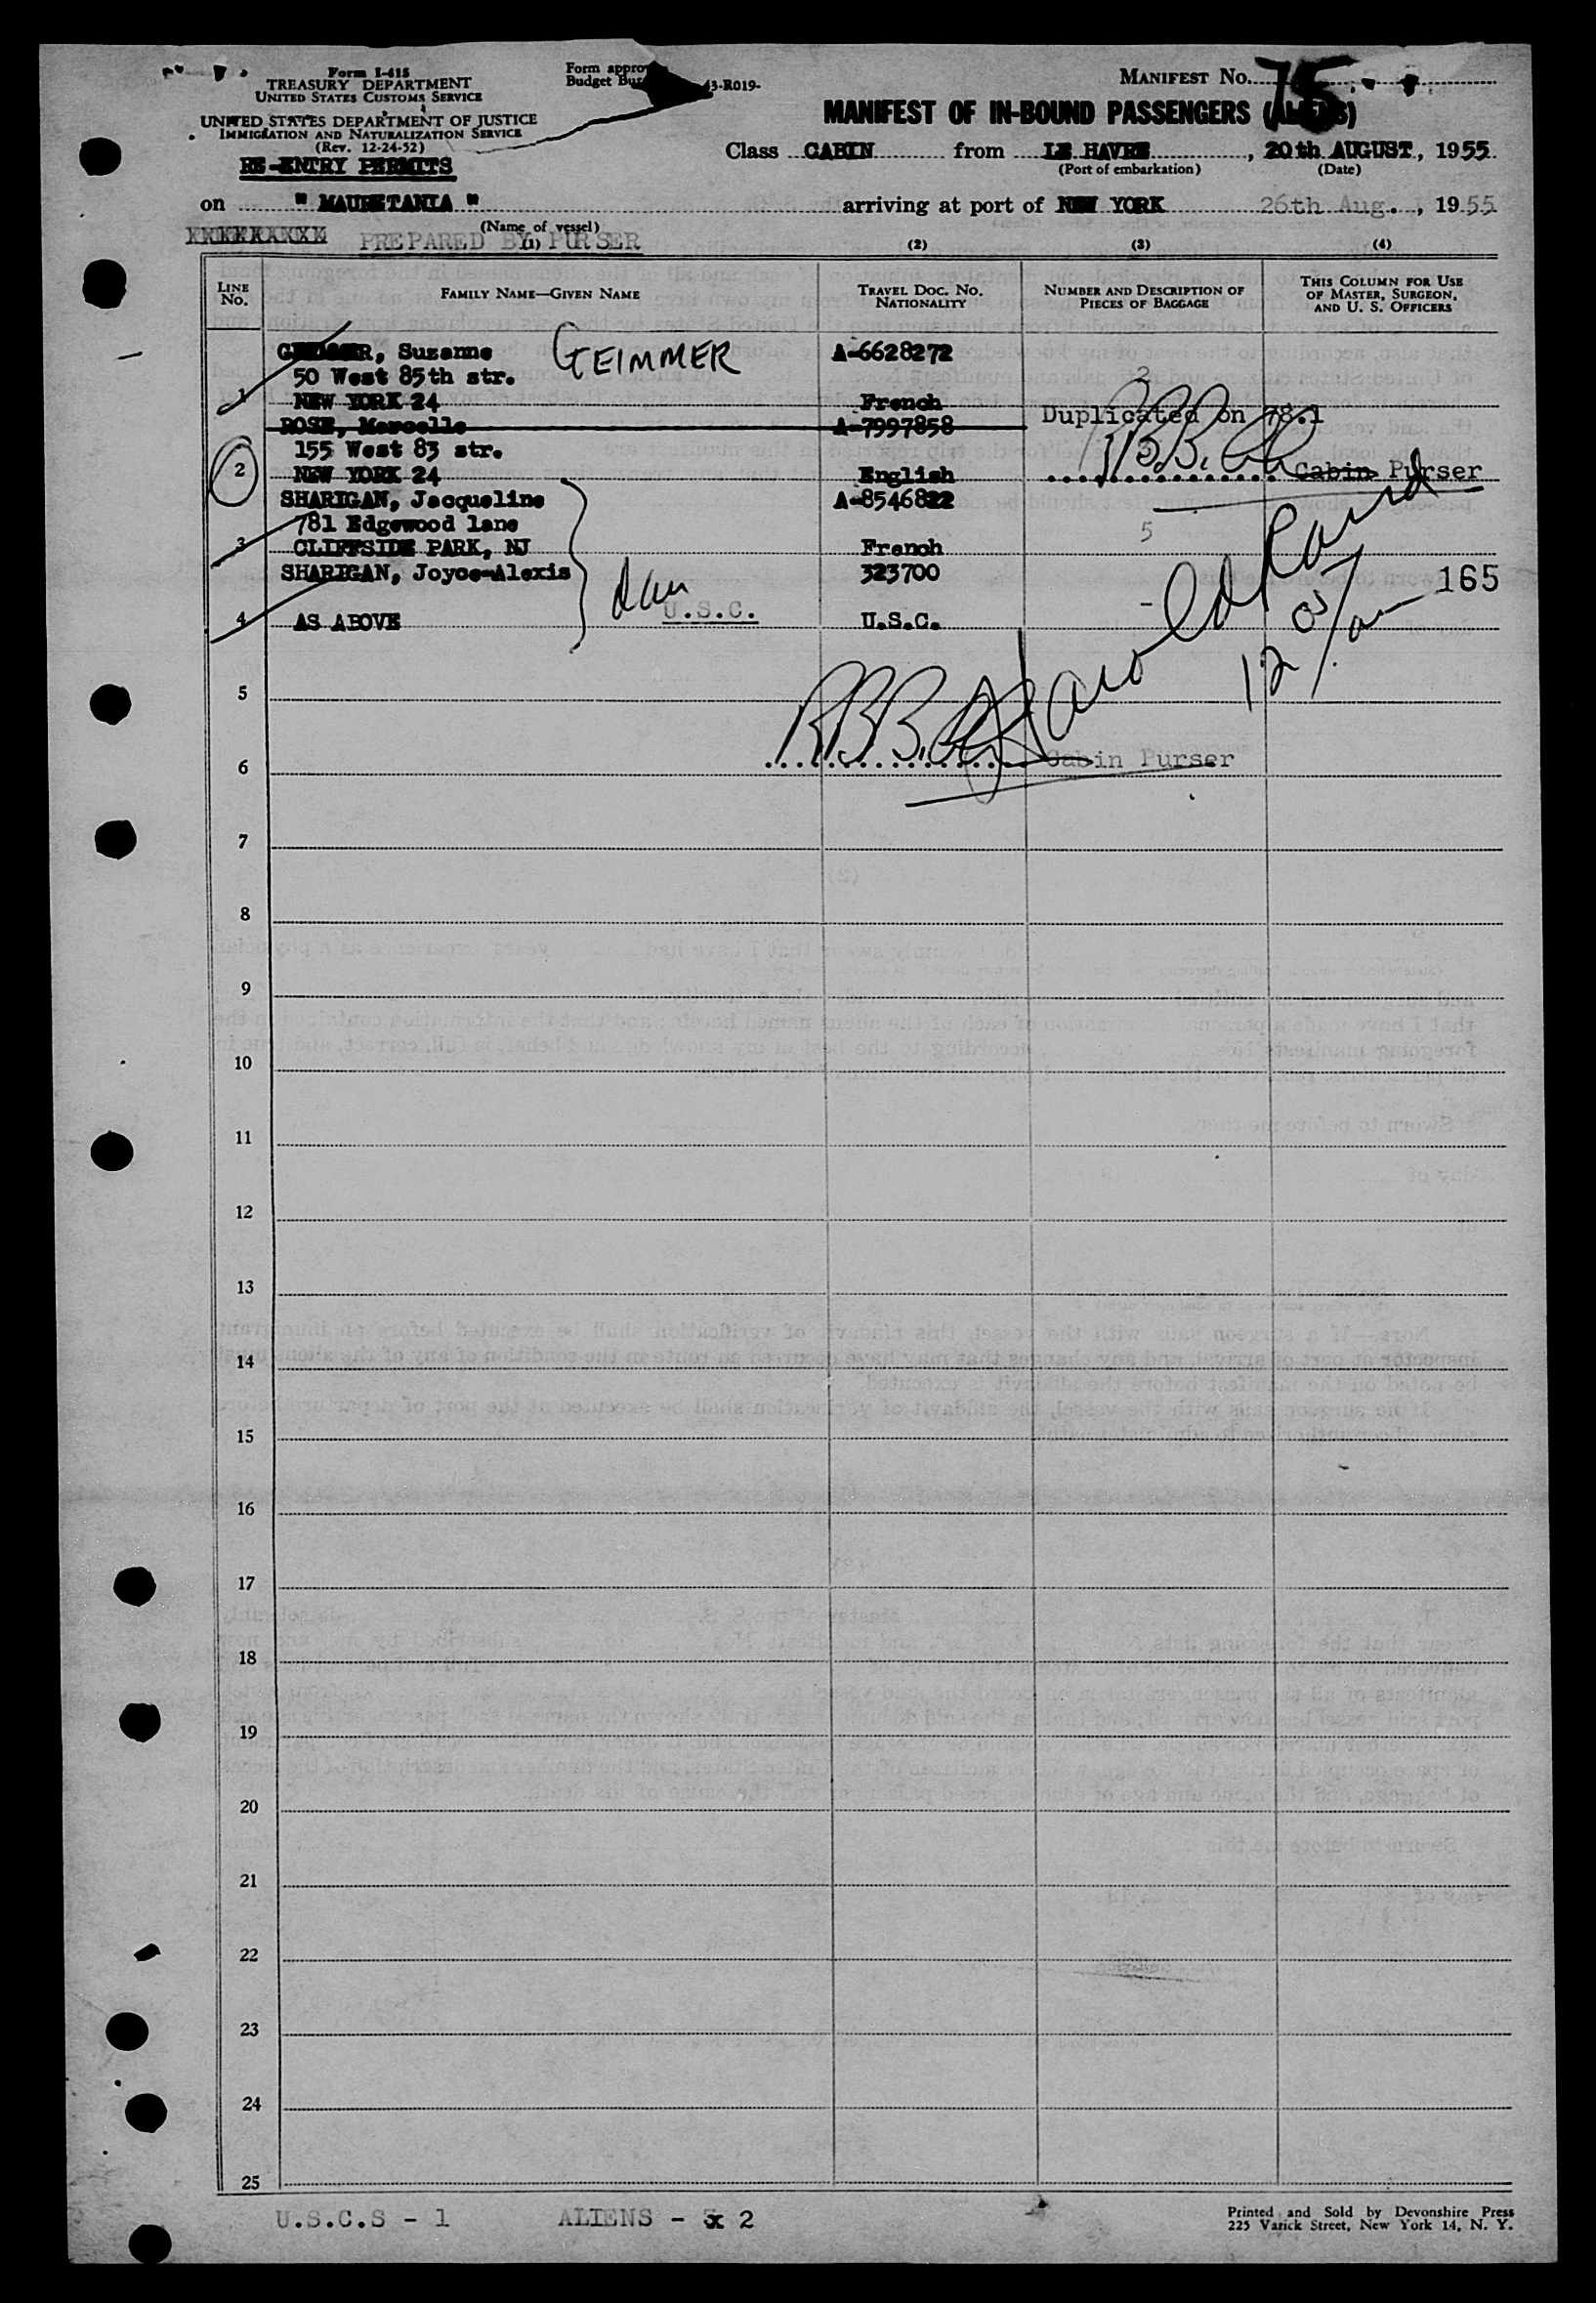 Form I-415
TREASURY DEPARTMENT
UNITED STATES CUSTOMS SERVICE
UNITED STATES DEPARTMENT OF JUSTICE
IMMIGRATION AND NATURALIZATION SERVICE
(Rev. 12-24-52)
RE-ENTRY PERMITS
Form
Budget
43-R019-
MANIFEST NO. 75
MANIFEST OF IN-BOUND PASSENGERS (ALIENS)
Class CABIN from LE HAVRE, 20th AUGUST, 1955
(Port of embarkation) (Date)
on " MAURETANIA " arriving at port of NEW YORK 26th Aug., 1955
(Name of vessel)
PREPARED BY PURSER
(1) (2) (3) (4)
LINE NO.
FAMILY NAME—GIVEN NAME
TRAVEL DOC. NO. NATIONALITY
NUMBER AND DESCRIPTION OF PIECES OF BAGGAGE
THIS COLUMN FOR USE OF MASTER, SURGEON, AND U. S. OFFICERS
Suzanne GEIMMER A-6628272
50 West 85th str.
1 NEW YORK 24 French 2
ROSE, Marcelle A-7997858 Duplicated on 78.1
155 West 83 str.
2 NEW YORK 24 English Cabin Purser
SHARIGAN, Jacqueline A-8546822
781 Edgewood lane
3 CLIFFSIDE PARK, NJ French 5
SHARIGAN, Joyce-Alexis 323700 165
4 AS ABOVE U.S.C. U.S.C. -
5
6 Cabin Purser
7
8
9
10
11
12
13
14
15
16
17
18
19
20
21
22
23
24
25
U.S.C.S - 1 ALIENS - 2
Printed and Sold by Devonshire Press
225 Varick Street, New York 14, N. Y.